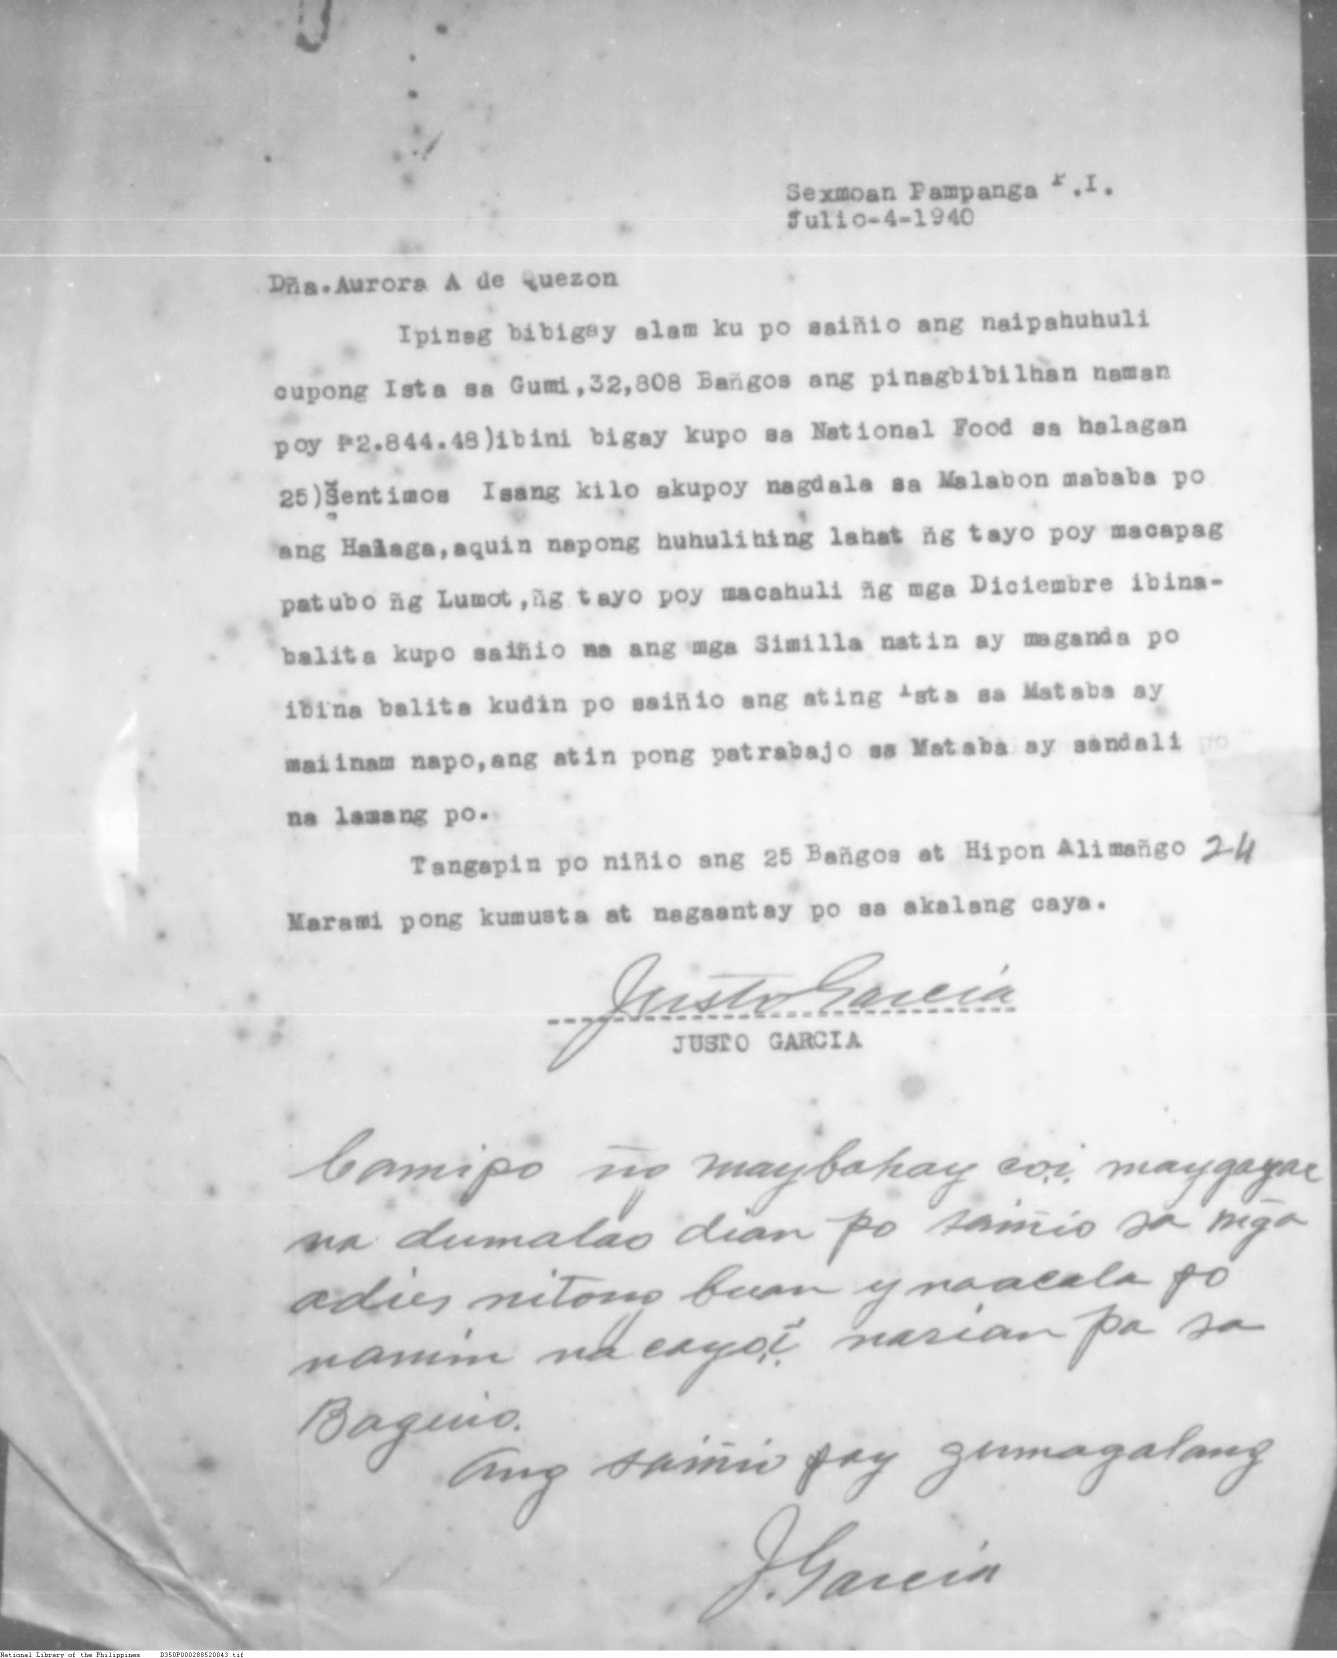 Sexmoan Pampanga P.I.
Julio-4-1940
Dña.Aurora A de Quezon
Ipinag bibigay alam ku po saiñio ang naipahuhuli
cupong Ista sa Gumi,32,808 Bañgos ang pinagbibilhan naman
poy ₱2.844.48)ibini bigay kupo sa National Food sa halagan
25)Sentimos Isang kilo akupoy nagdala sa Malabon mababa po
ang Halaga,aquin napong huhulihing lahat ñg tayo poy macapag
patubo ñg Lumot,ñg tayo poy macahuli ñg mga Diciembre ibina-
balita kupo saiñio na ang mga Similla natin ay maganda po
ibina balita kudin po saiñio ang ating Ista sa Mataba ay
maiinam napo,ang atin pong patrabajo sa Mataba ay sandali po
na lamang po.
Tangapin po niñio ang 25 Bañgos at Hipon Alimañgo 24
Marami pong kumusta at nagaantay po sa akalang caya.
Justo Garcia
JUSTO GARCIA
Camipo ñg maybahay coi maygayac
na dumalao dian po saiñio sa mḡa
adies nitong buan ynaacala po
namin na cayoi narian pa sa
Baguio.
Ang saiñio poy gumagalang
J. Garcia
National Library of the Philippines D350P000288520043.tif